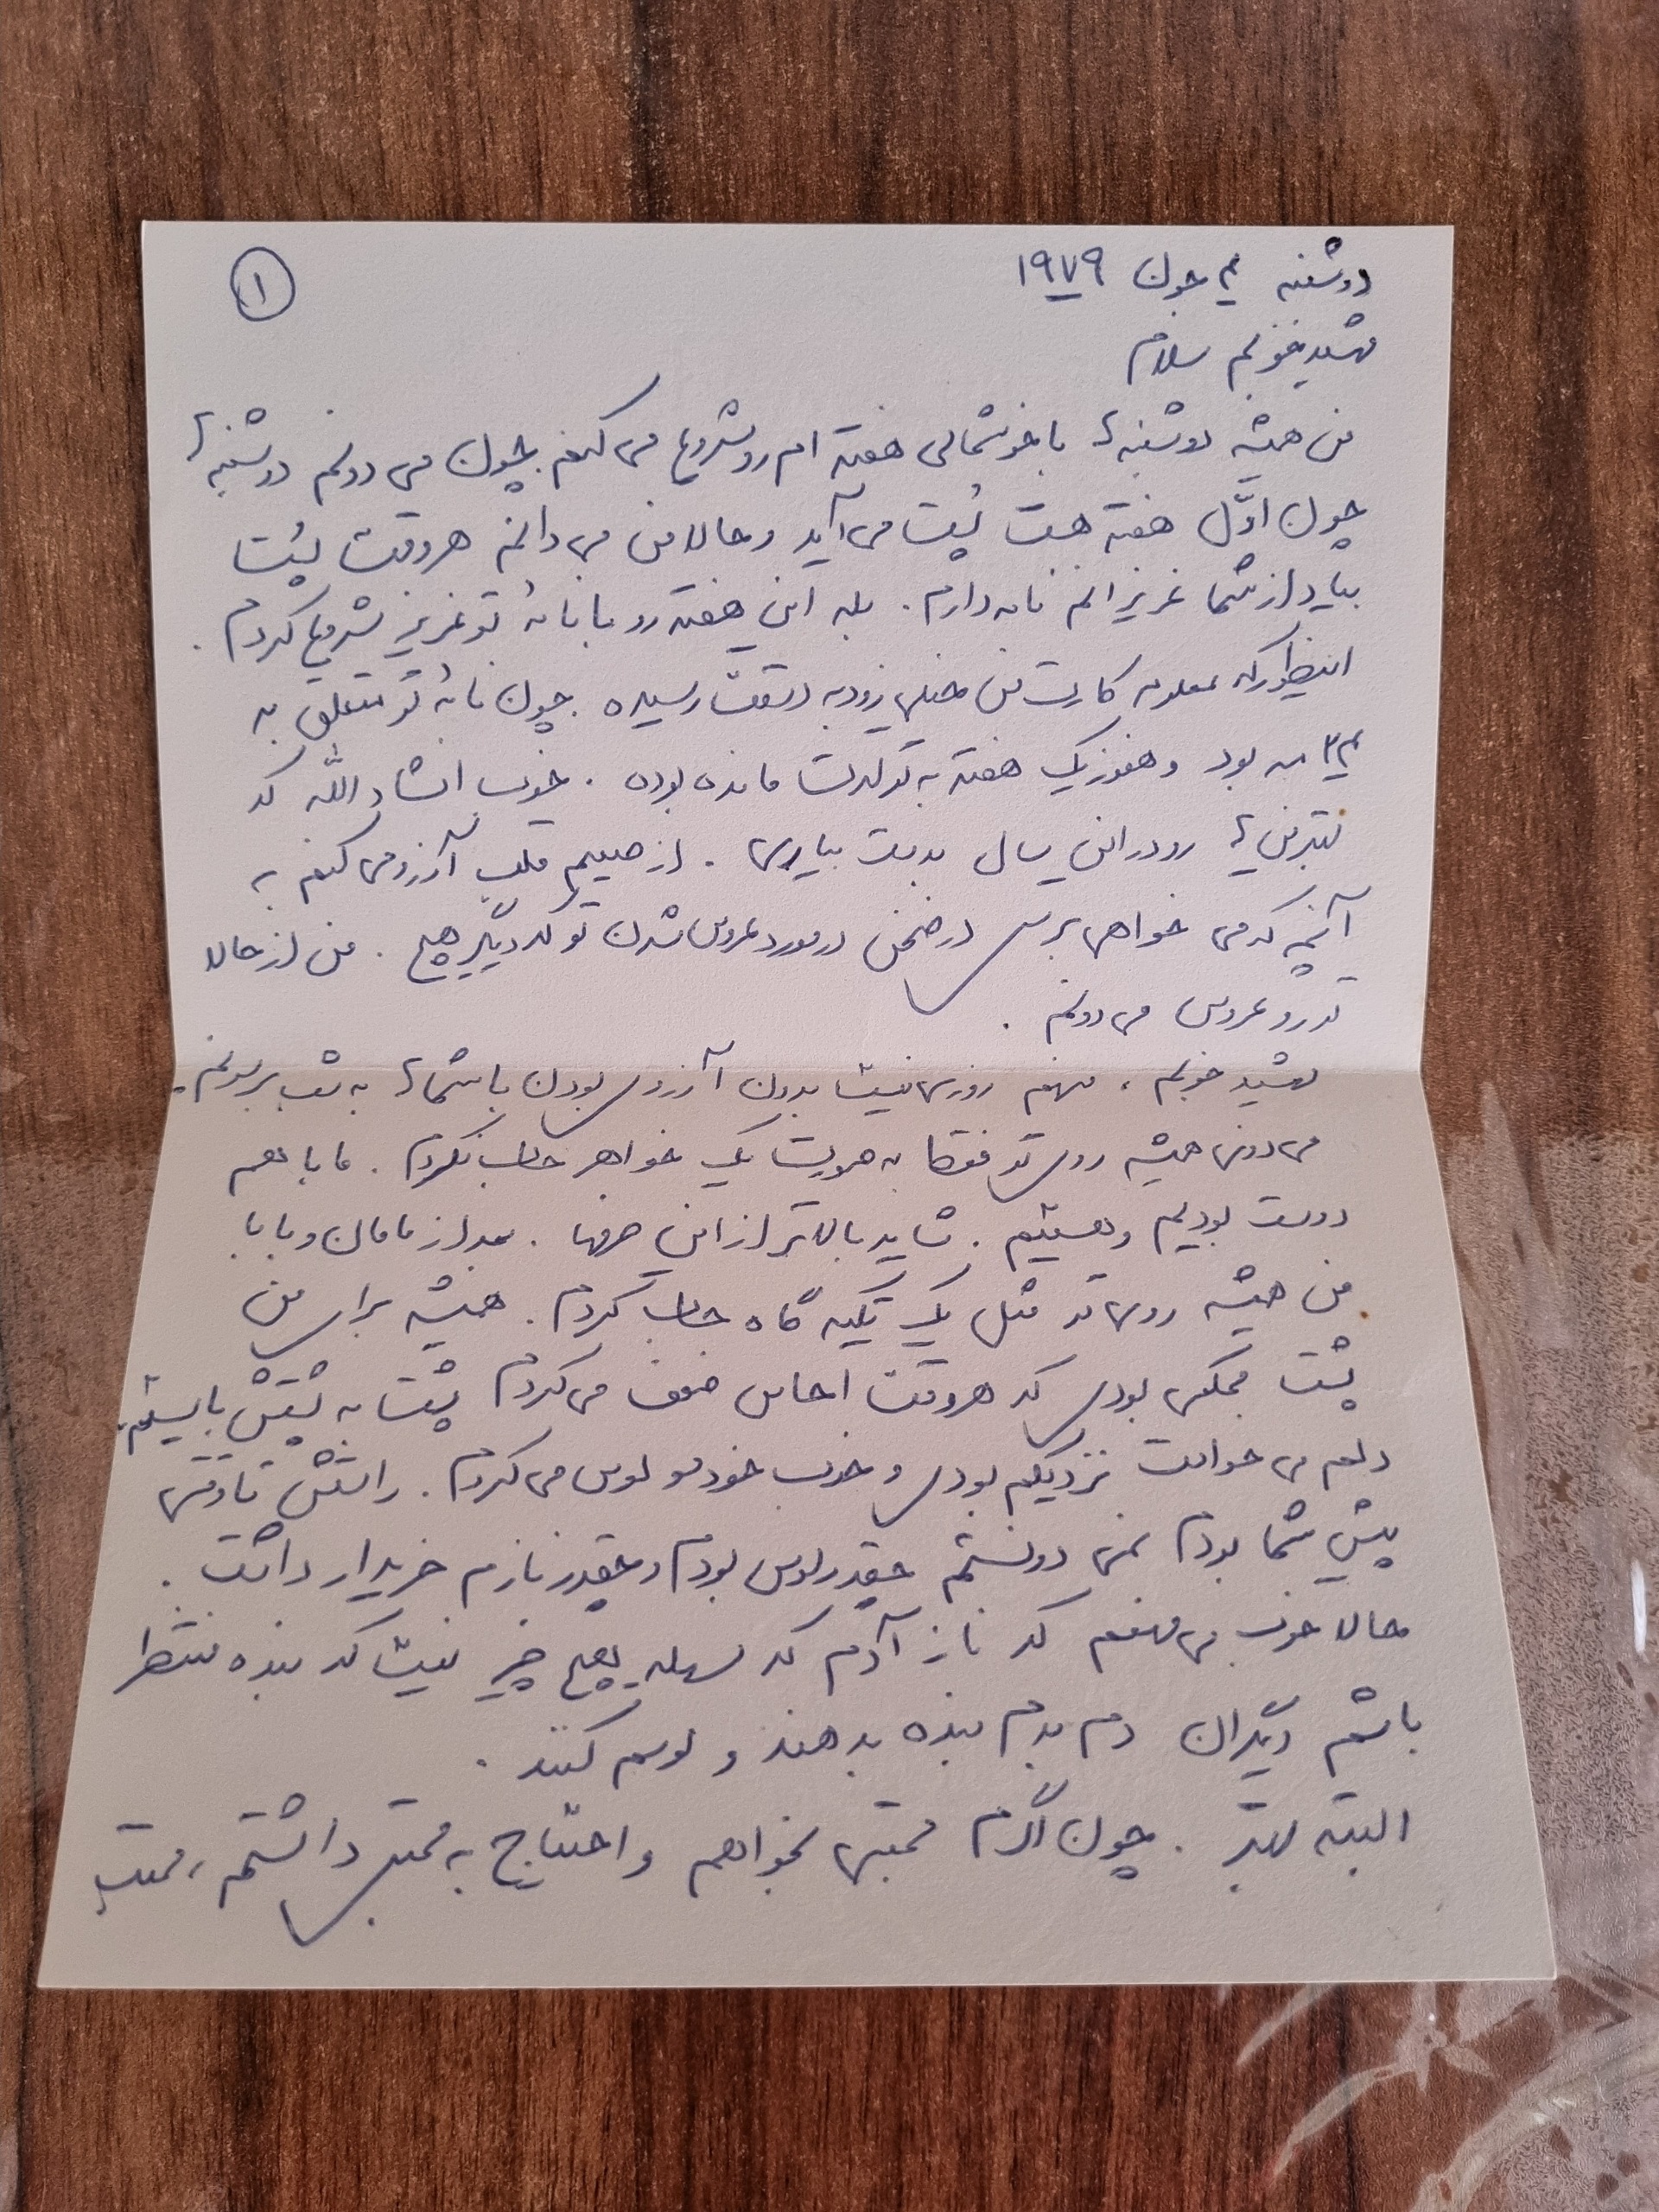 ①
دوشنبه ۴ جون ۱۹۷۹
مهشید خوبم سلام
من همیشه دوشنبه‌ها با خوشحالی هفته ام رو شروع می کنم. چون می دونم دوشنبه‌ها
چون اوّل هفته هست پُست می آید و حالا من می دانم هر وقت پُست
بیاد از شما عزیزانم نامه دارم. بله این هفته رو با نامهٔ تو عزیز شروع کردم.
اینطور که معلومه کارت من خیلی زود به دستت رسیده. چون نامهٔ تو متعلق به
مه بود و هنوز یک هفته به تولدت مانده بوده. خوب انشاءالله که
بهترین‌ها رو در این سال بدست بیاری. از صمیم قلب آرزو می کنم به
آنچه که می خواهی برسی در ضمن در مورد عروس شدن تو که دیگر هیچ. من از حالا
تو رو عروس می دونم.
مهشید خوبم، منهم روزی نیست بدون آرزوی بودن با شماها به شب برسونم.
می دونی همیشه روی تو فقط به صورت یک خواهر حساب نکردم. ما با هم
دوست بودیم و هستیم. شاید بالاتر از این حرفها. بعد از مامان و بابا
من همیشه روی تو مثل یک تکیه گاه حساب کردم. همیشه برای من
پشت محکمی بودی که هر وقت احساس ضعف می کردم پشت به پشتش بایستم.
دلم می خواست نزدیکم بودی و خوب خودمو لوس می کردم. راستش تا وقتی
پیش شما بودم نمی دونستم چقدر لوس بودم و چقدر نازم خریدار داشت.
حالا خوب می فهمم که ناز آدم که سهله هیچ چیز نیست که بنده منتظر
باشم دیگران دم بدم بنده بدهند و لوسم کنند.
البته بهتر. چون اگرم محبتی بخواهم و احتیاج به محبتی داشتم، محبت